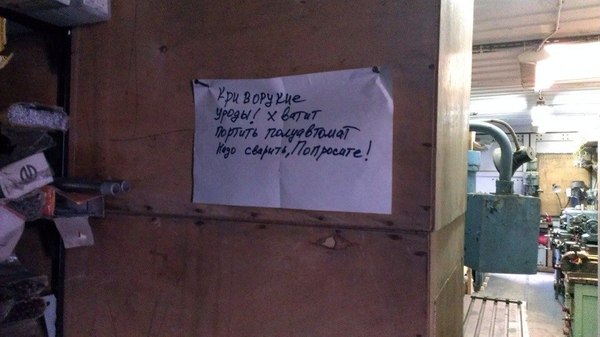 Криворукие
уроды! Хватит
портить полуавтомат
Надо сварить, Попросите!